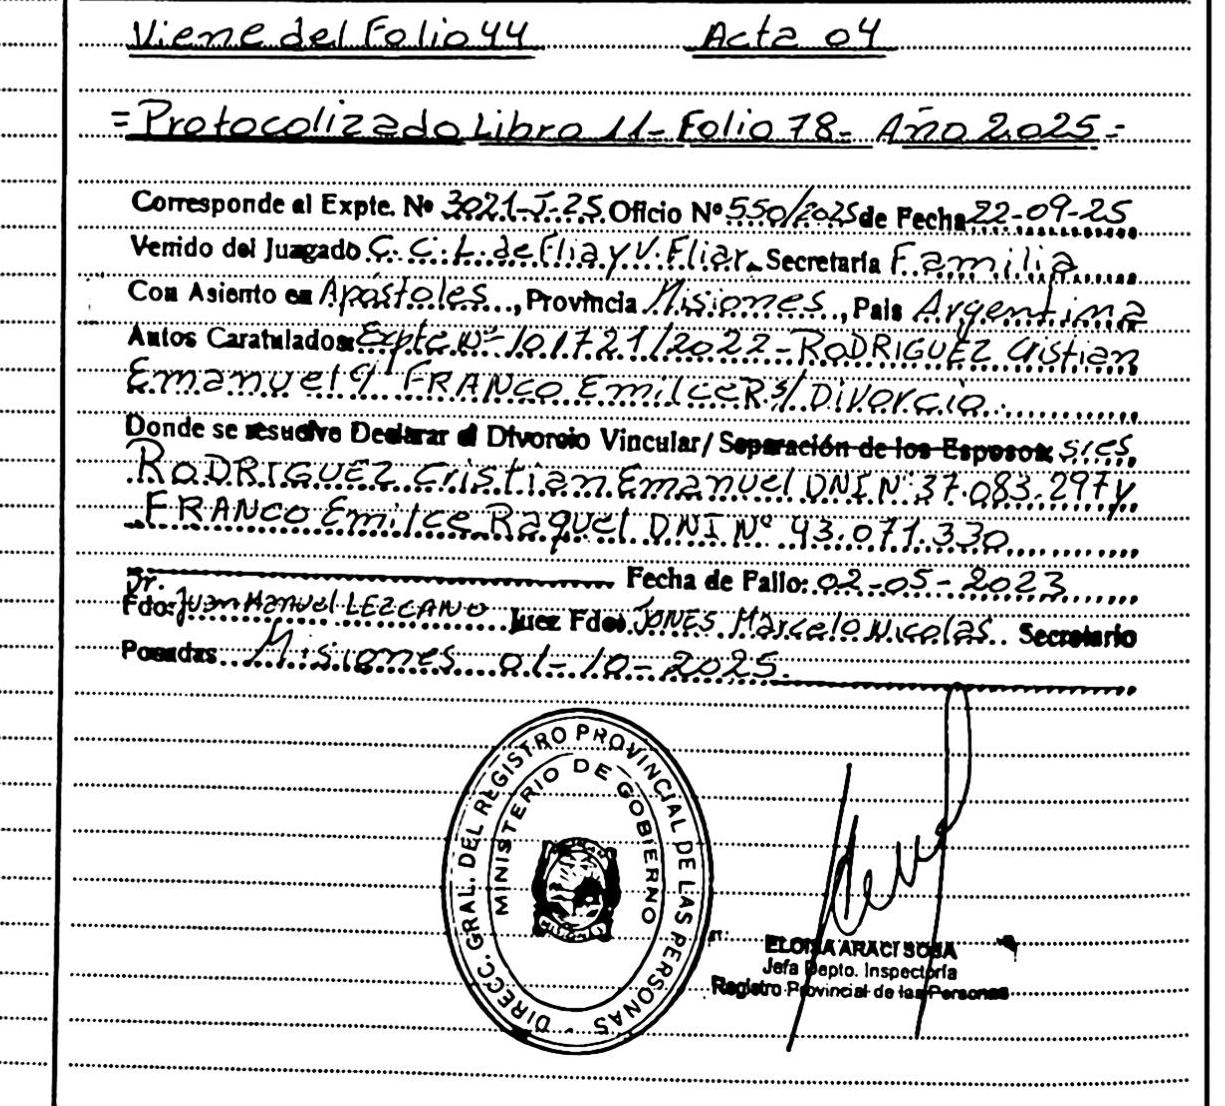 Viene del Folio 44 Acta 04
=Protocolizado Libro 11- Folio 78- Año 2025=
Corresponde al Expte. Nº 3021-I-25 Oficio Nº 550/2025 de Fecha 22-09-25
Venido del Juzgado C. C. L. de Flia y V. Fliar. Secretaría Familia
Con Asiento en Apóstoles, Provincia Misiones, País Argentina
Autos Caratulados: Expte Nº 101721/2022-RODRIGUEZ Cristian
Emanuel c/ FRANCO Emilce R s/ Divorcio
Donde se resuelve Declarar el Divorcio Vincular/ Separación de los Esposos: sres
RODRIGUEZ Cristian Emanuel DNI Nº 37.083.297 y
FRANCO Emilce Raquel DNI Nº 43.071.330
Fecha de Fallo: 02-05-2023
Fdo: Juan Manuel LEZCANO Juez Fdo: JONES Marcelo Nicolas Secretario
Posadas Misiones 01-10-2025.
DIRECC. GRAL. DEL REGISTRO PROVINCIAL DE LAS PERSONAS
MINISTERIO DE GOBIERNO
ELOISA ARACI SOSA
Jefa Depto. Inspectoría
Registro Provincial de las Personas